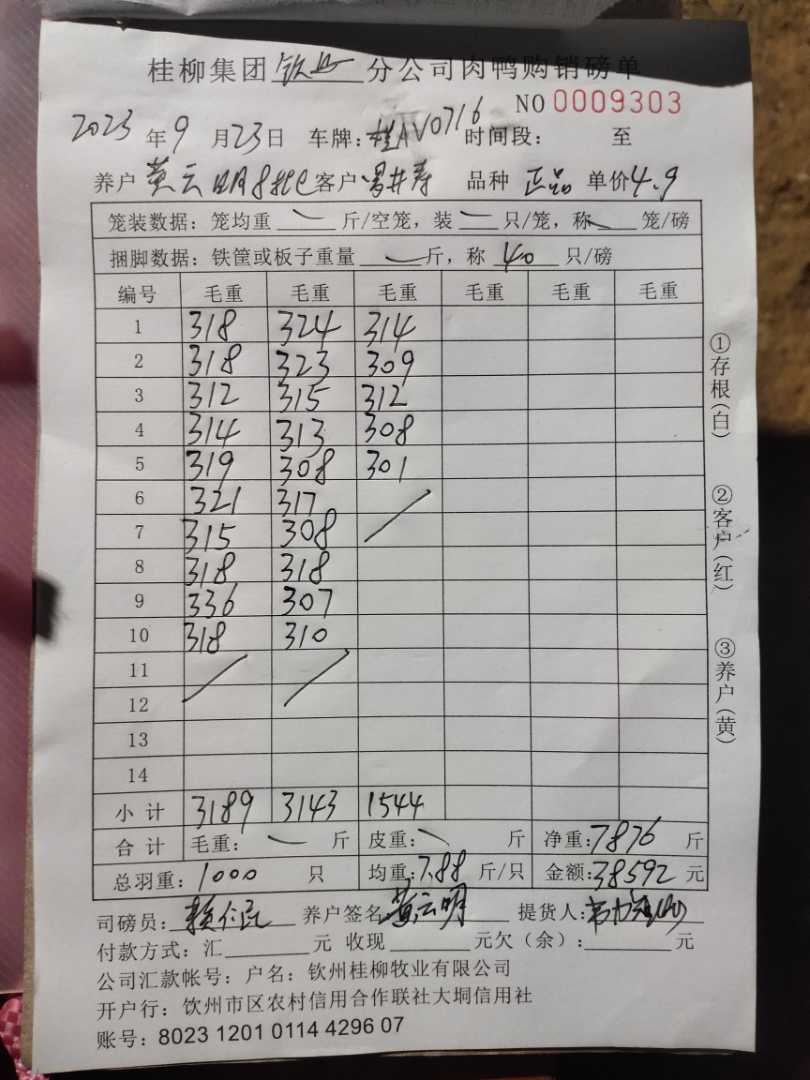 桂柳集团钦州分公司肉鸭购销磅单
NO 0009303
2023年9月23日 车牌:桂AV0716 时间段: 至
养户 黄云明8批 客户 井寿 品种 正品 单价4.9
笼装数据:笼均重 — 斤/空笼,装 — 只/笼,称 — 笼/磅
捆脚数据:铁筐或板子重量 — 斤,称 40 只/磅
编号 毛重 毛重 毛重 毛重 毛重 毛重
1 318 324 314
2 318 323 309
3 312 315 312
4 314 313 308
5 319 308 301
6 321 317
7 315 308
8 318 318
9 336 307
10 318 310
11
12
13
14
小计 3189 3143 1544
合计 毛重: — 斤 皮重: — 斤 净重:7876 斤
总羽重:1000 只 均重:7.88 斤/只 金额:38592 元
司磅员: 养户签名 黄云明 提货人:
付款方式:汇 元 收现 元欠(余): 元
公司汇款帐号:户名:钦州桂柳牧业有限公司
开户行:钦州市区农村信用合作联社大垌信用社
账号:8023 1201 0114 4296 07
①存根(白)
②客户(红)
③养户(黄)